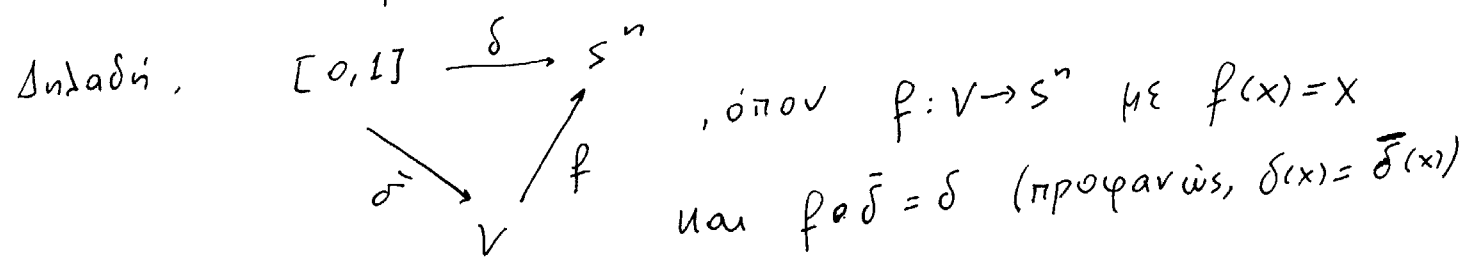 Δηλαδή, [0,1] δ→ Sⁿ
, όπου f: V→Sⁿ με f(x)=x
δ̄ V f
και f∘δ̄ = δ (προφανώς, δ(x)= δ̄(x))